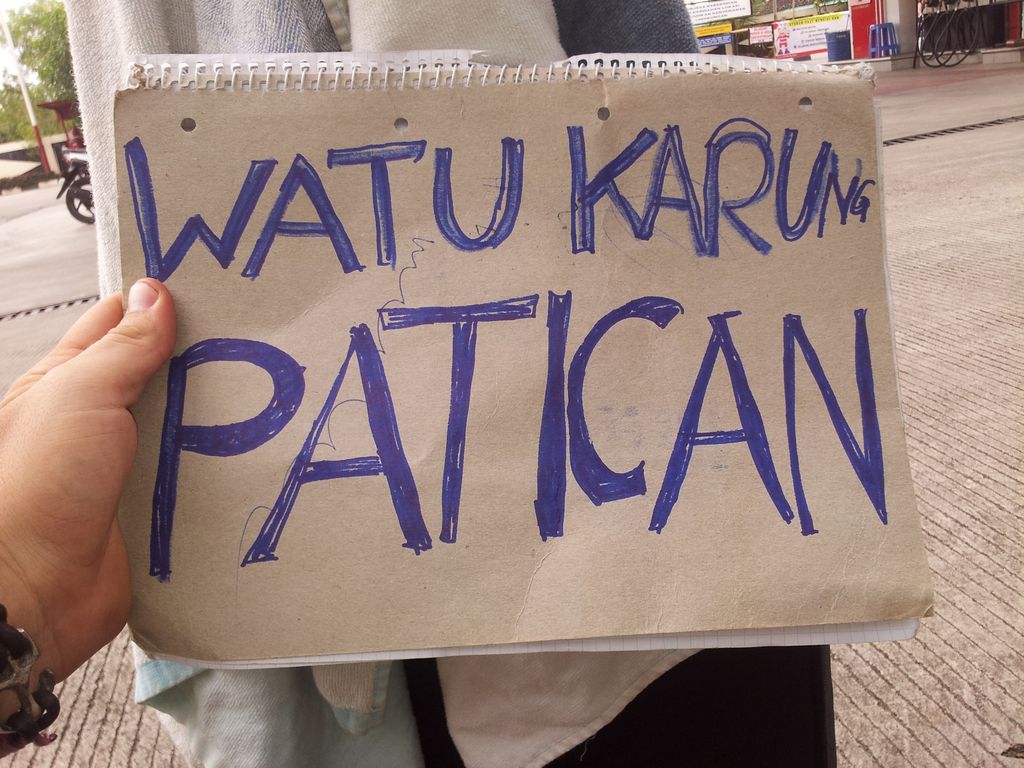 WATU KARUNG
PATICAN